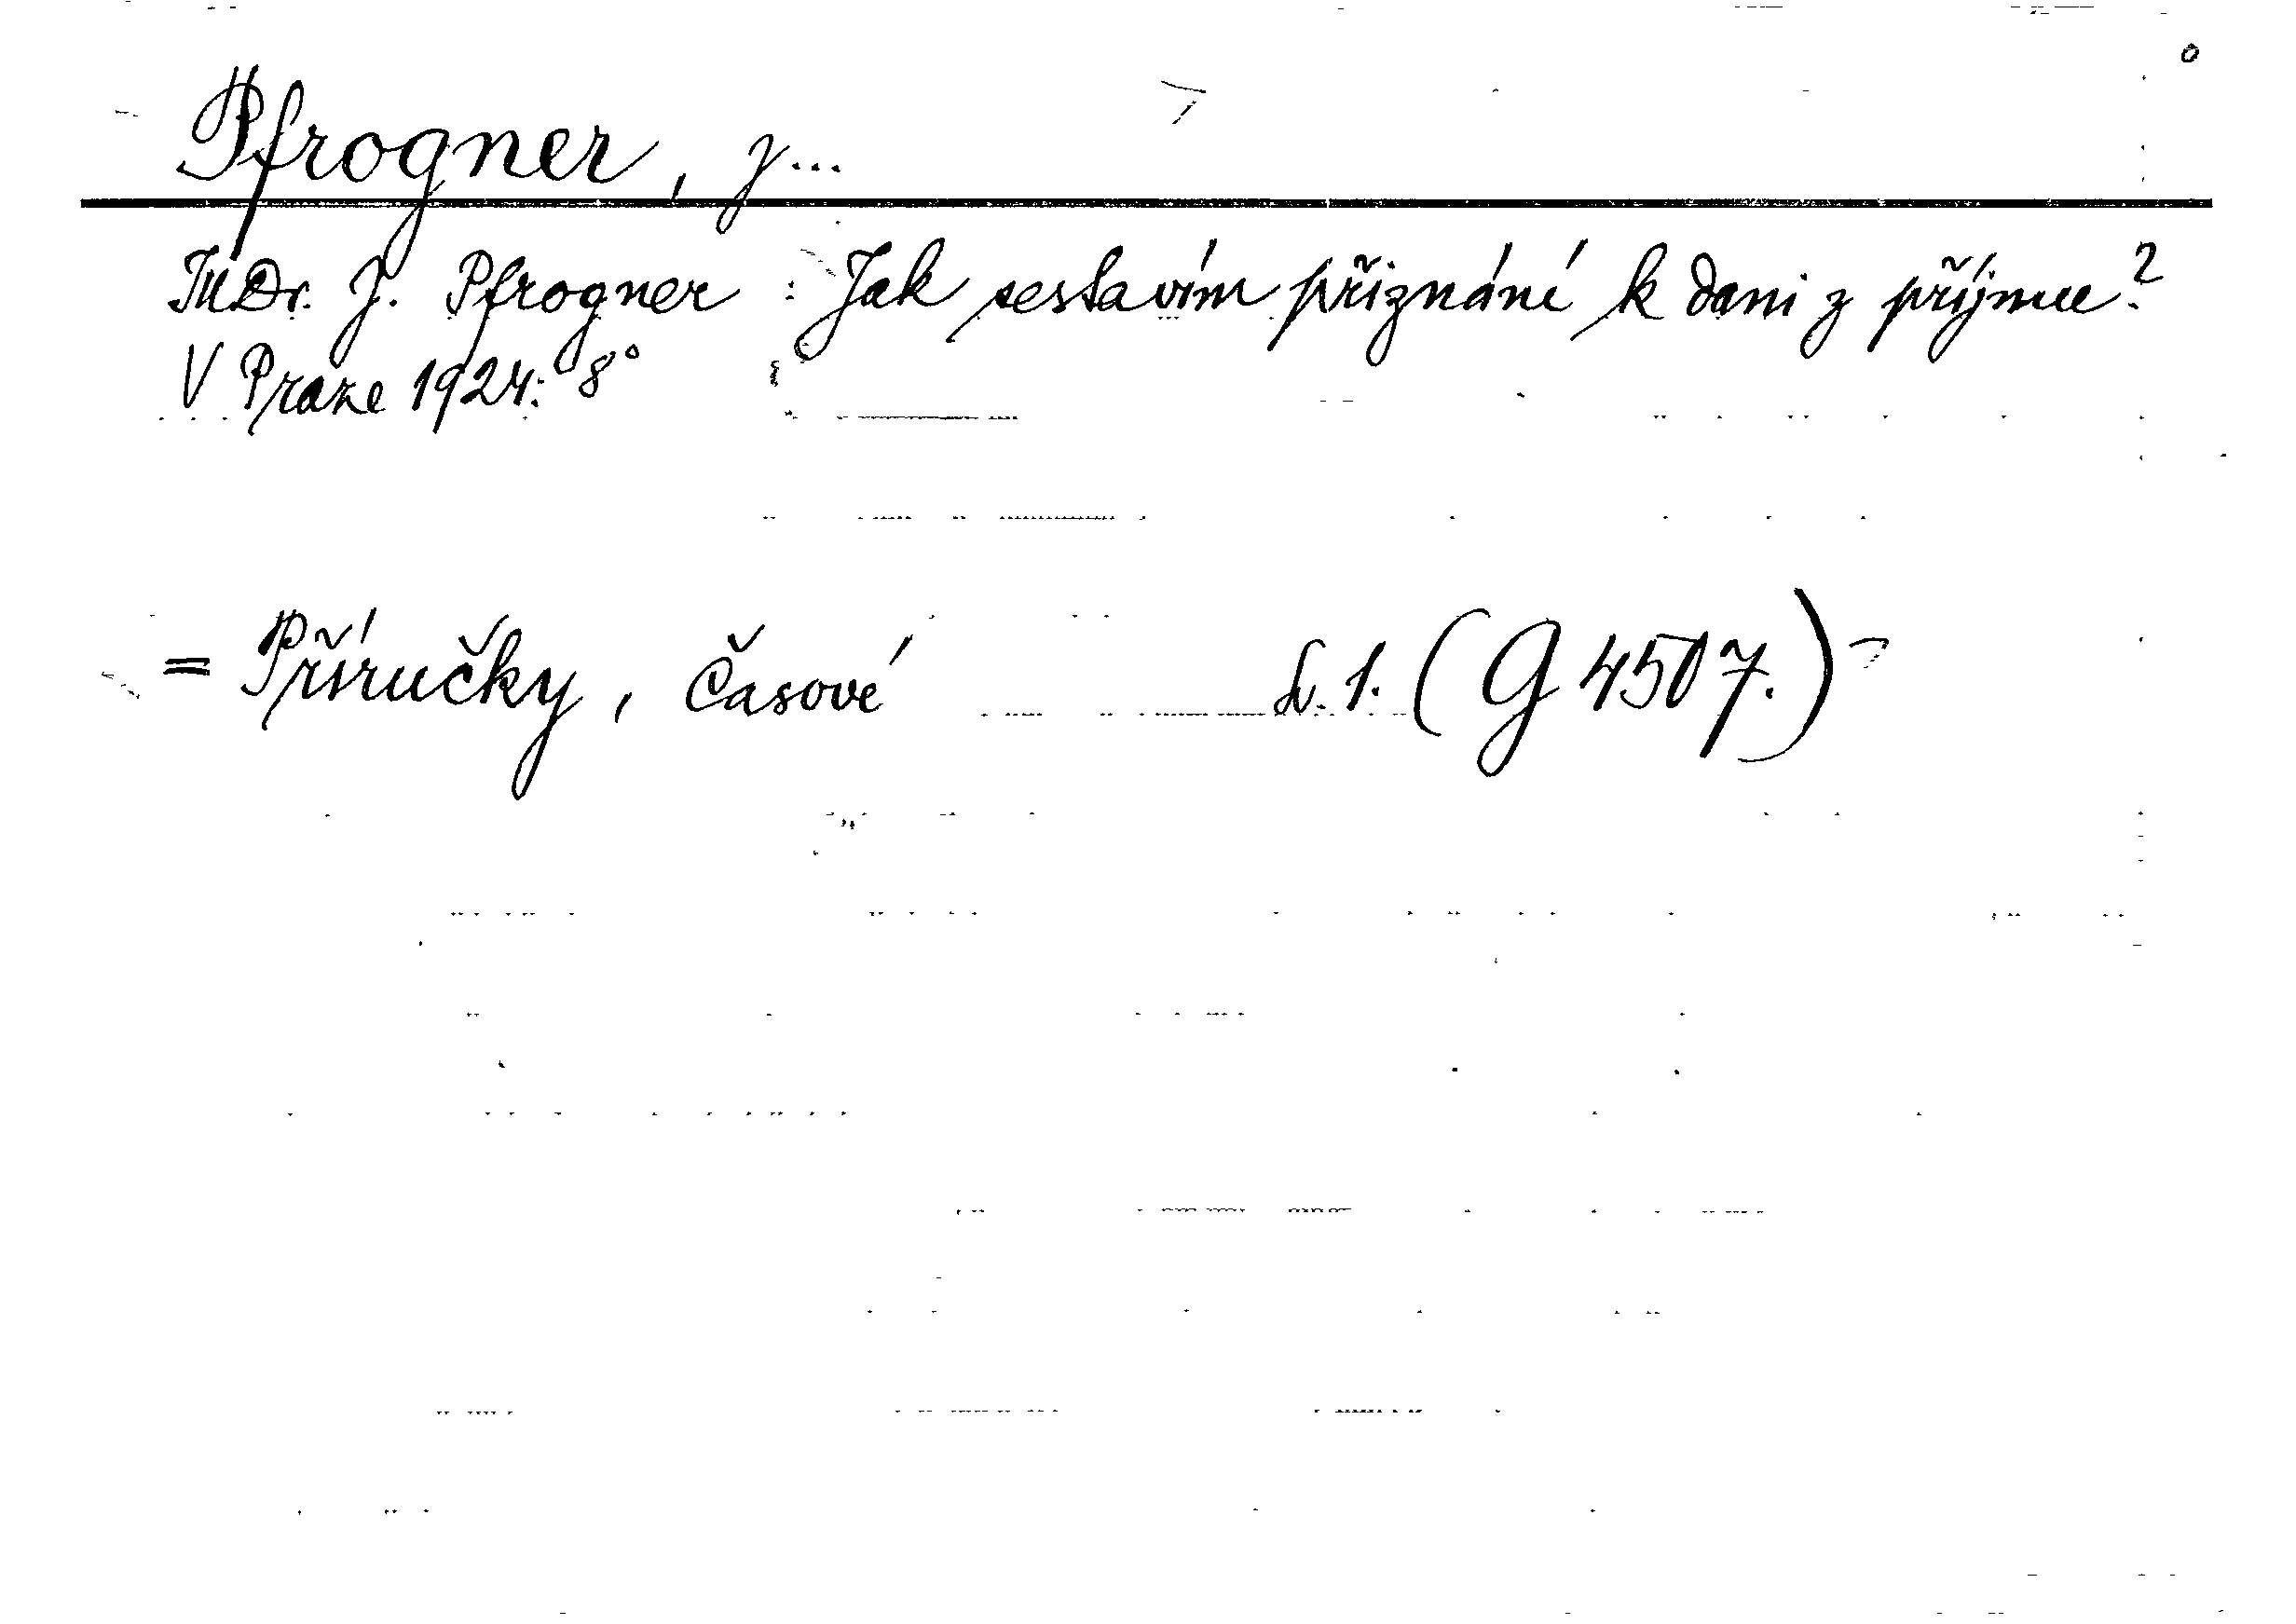 Pfrogner, J...
JUDr. J. Pfrogner : Jak sestavím přiznání k dani z příjmu?
V Praze 1924. 8°
= Příručky, Časové sv. 1. (G 4507.)